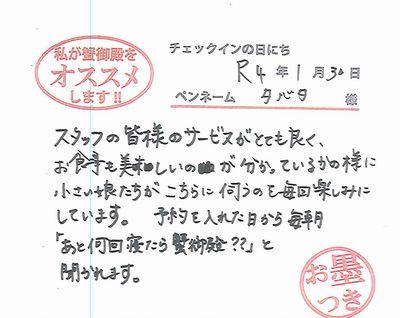 私が蟹御殿を
オススメ
します!!
チェックインの日にち
R4年1月30日
ペンネーム タバタ 様
スタッフの皆様のサービスがとても良く、
お食事も美味しいのが分かっているかの様に
小さい娘たちがこちらに伺うのを毎回楽しみに
しています。 予約を入れた日から毎朝
「あと何回寝たら蟹御殿??」と
聞かれます。
お墨
つき